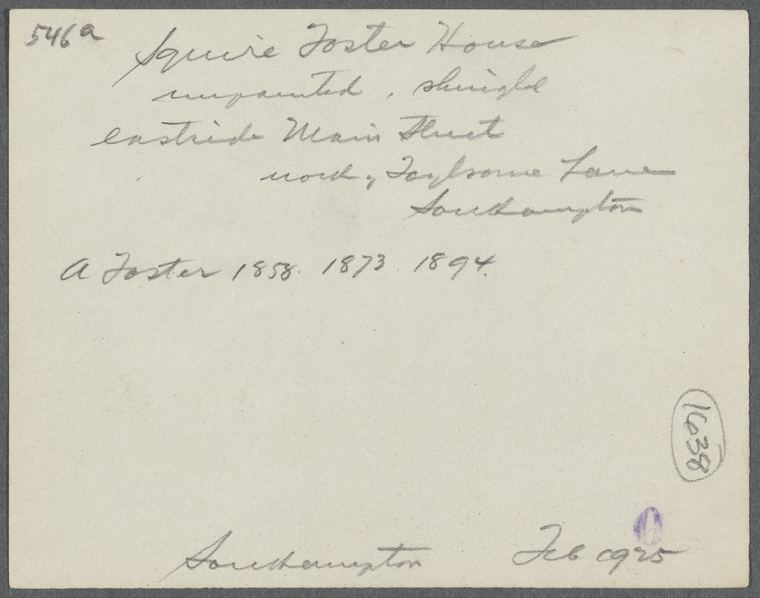 546a
Squire Foster House
unpainted, shingled
eastside Main Street
north of Toylsome Lane
Southampton
A Foster 1858. 1873 1894.
1638
Southampton Feb 1925